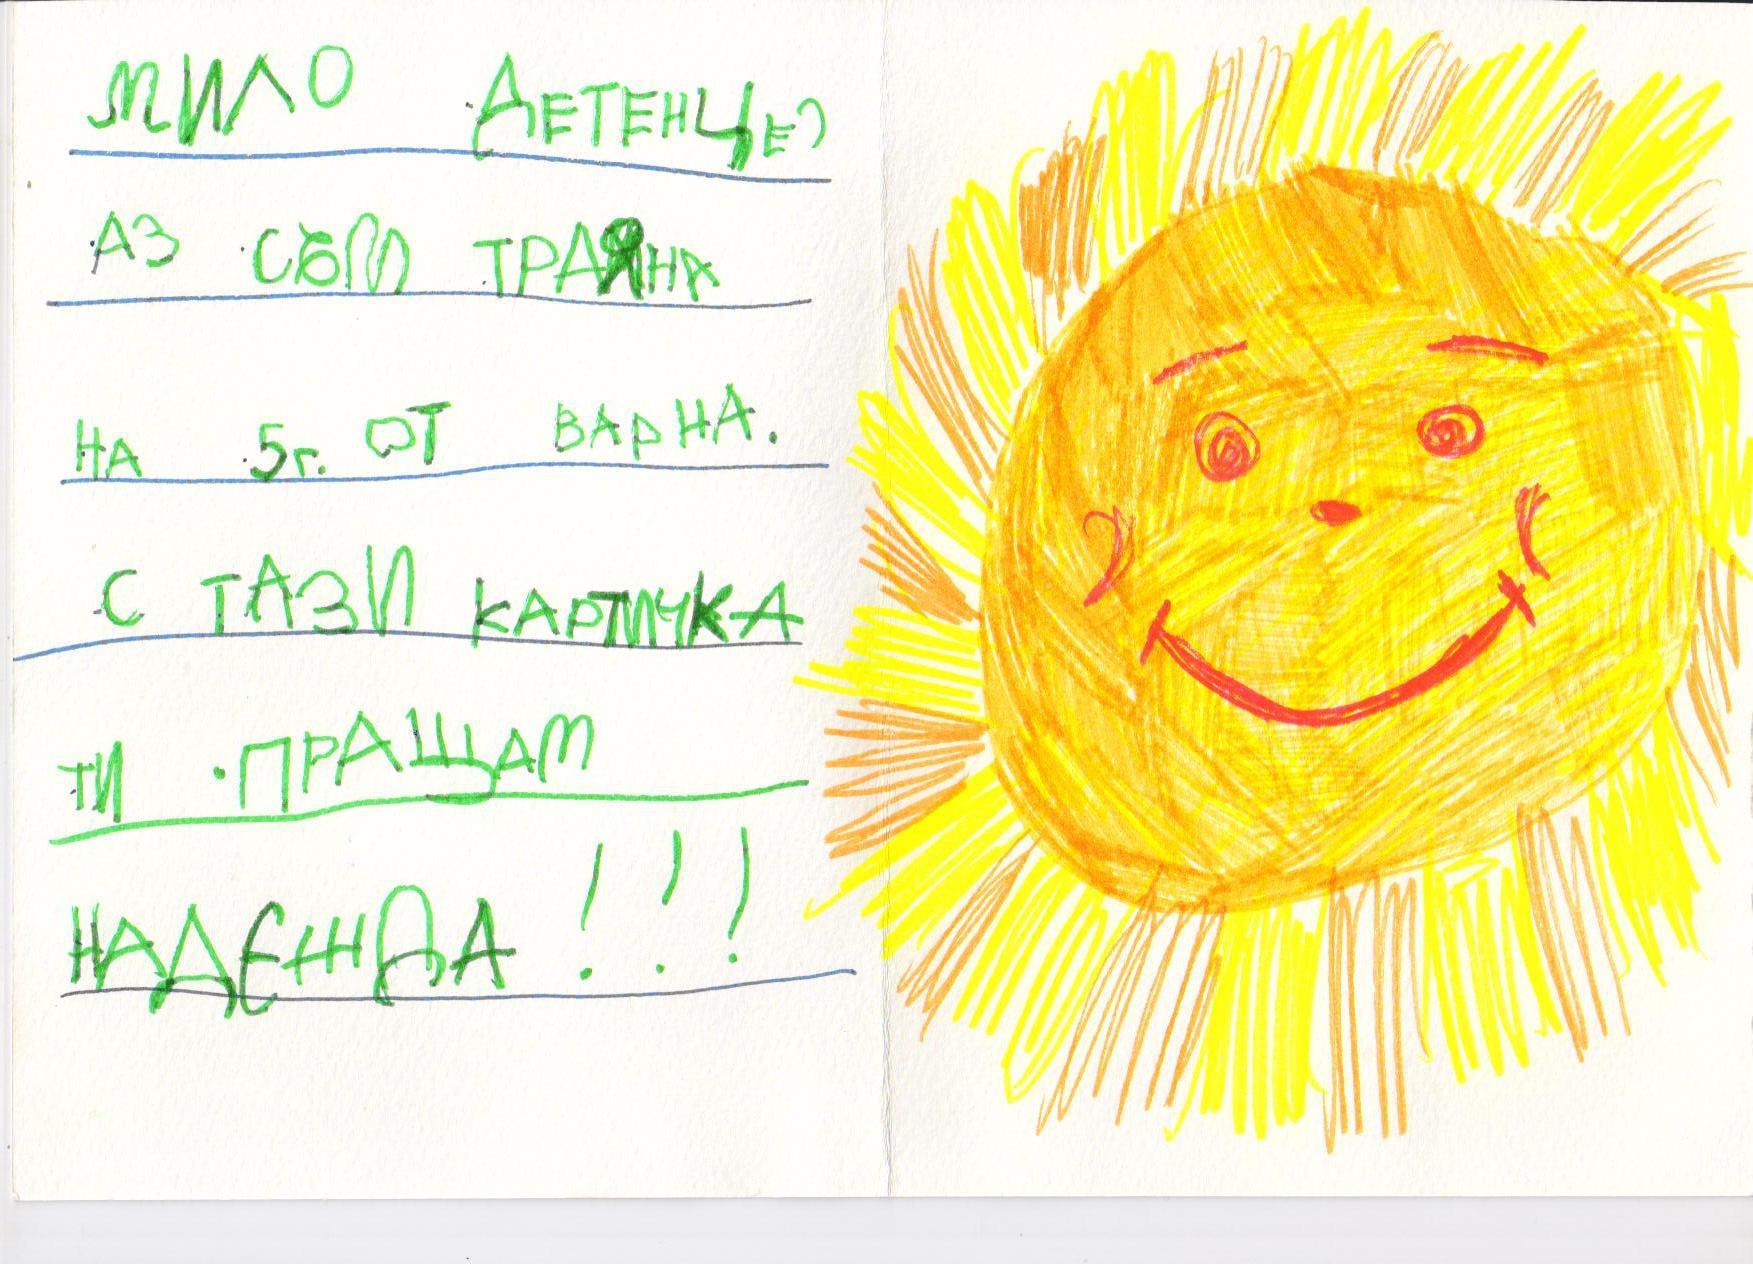 МИЛО ДЕТЕНЦЕ,
АЗ СЪМ ТРАЯНА
НА 5г. ОТ ВАРНА.
С ТАЗИ КАРТИЧКА
ТИ ПРАЩАМ
НАДЕЖДА!!!